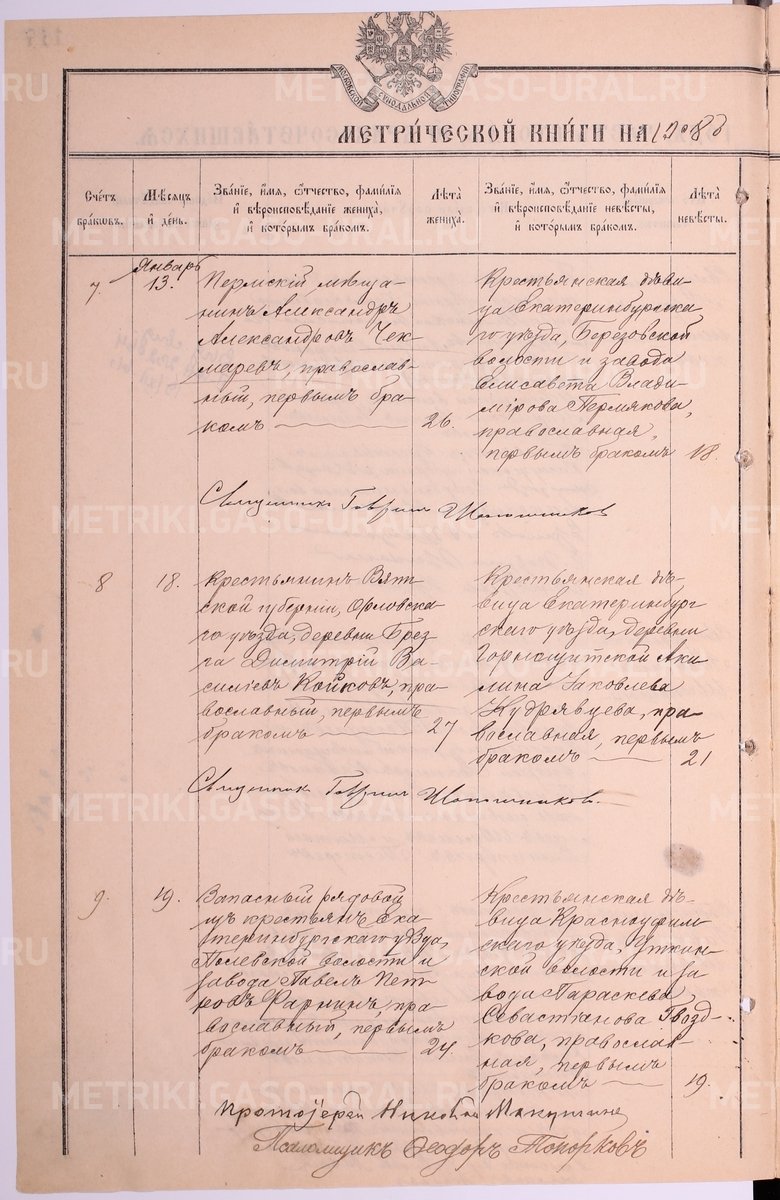 МОСКОВСКОЙ СѴНОДАЛЬНОЙ ТИПОГРАФІИ
МЕТРИ́ЧЕСКОЙ КНИ́ГИ НА
Сче́тъ бра́ковъ.
Мѣ́сяцъ и҆ де́нь.
Зва́нїе, и҆́мя, ѻ҆́тчество, фами́лїя и҆ вѣроисповѣ́данїе жениха́, и҆ кото́рымъ бра́комъ.
Лѣ́та жениха́.
Зва́нїе, и҆́мя, ѻ҆́тчество, фами́лїя и҆ вѣроисповѣ́данїе невѣ́сты, и҆ кото́рымъ бра́комъ.
Лѣ́та невѣ́сты.
Январь
7.
13.
Пермскій мѣща-
нинъ Александръ
Александровъ Чек-
маревъ, православ-
ный, первымъ бра-
комъ
26.
Крестьянская дѣви-
ца Екатеринбургска-
го уѣзда, Березовской
волости и завода
Елисавета Влади-
мірова Пермякова,
православная,
первымъ бракомъ
18.
Священникъ Гавріилъ
8
18.
Крестьянинъ Вят-
ской губерніи, Орловска-
го уѣзда, деревни Брез-
га Димитрій Ва-
силіевъ Койковъ, пра-
вославный, первымъ
бракомъ
27
Крестьянская дѣ-
вица Екатеринбург-
скаго уѣзда, деревни
Горнощитской Аки-
лина Іаковлева
Кудрявцева, пра-
вославная, первымъ
бракомъ
21
Священникъ Гавріилъ
9.
19.
Запасный рядовой
изъ крестьянъ Ека-
теринбургскаго уѣзда,
Полевской волости и
завода Павелъ Пет-
ровъ Фарнинъ, пра-
вославный, первымъ
бракомъ
24.
Крестьянская дѣ-
вица Красноуфим-
скаго уѣзда, Уткин-
ской волости и за-
вода Параскева
Севастіанова Звозд-
кова, православ-
ная, первымъ
бракомъ
19.
Протоіерей Николай
Псаломщикъ Ѳеодоръ Топорковъ
METRIKI.GASO-URAL.RU